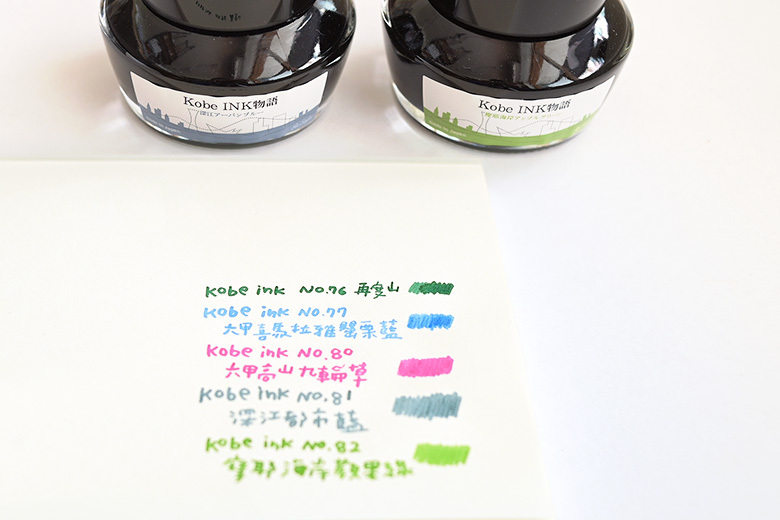 Kobe INK物語
深江アーバンブルー
Kobe INK物語
摩耶海岸アップルグリーン
Kobe ink No.76 再度山
Kobe ink No.77
六甲喜馬拉雅罌粟藍
Kobe ink No.80
六甲高山九輪草
Kobe ink No.81
深江都市藍
Kobe ink No.82
摩耶海岸蘋果綠